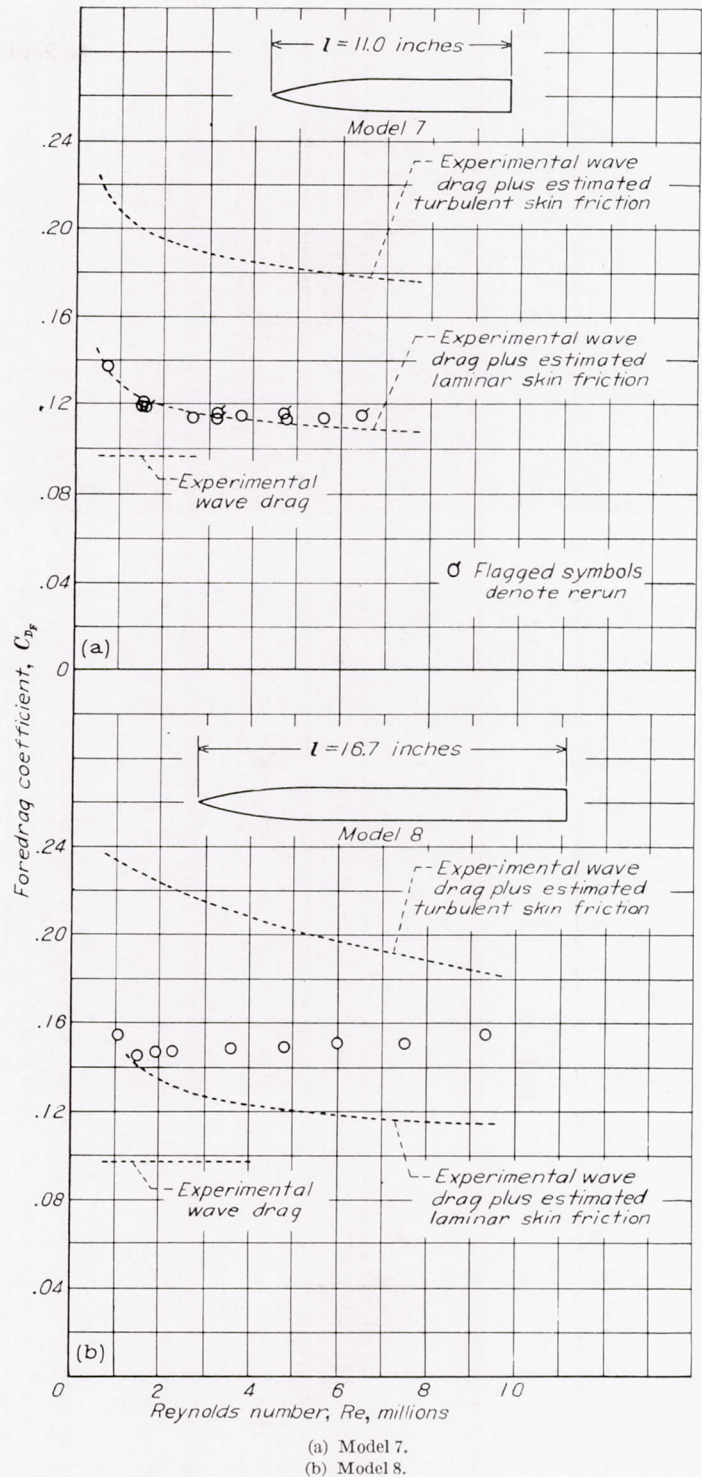 l = 11.0 inches
Model 7
.24
Experimental wave
drag plus estimated
turbulent skin friction
.20
.16
Experimental wave
drag plus estimated
laminar skin friction
.12
Experimental
wave drag
.08
Flagged symbols
denote rerun
.04
(a)
0
Foredrag coefficient, C_DF
l = 16.7 inches
Model 8
.24
Experimental wave
drag plus estimated
turbulent skin friction
.20
.16
.12
Experimental
wave drag
Experimental wave
drag plus estimated
laminar skin friction
.08
.04
(b)
0 2 4 6 8 10
Reynolds number, Re, millions
(a) Model 7.
(b) Model 8.